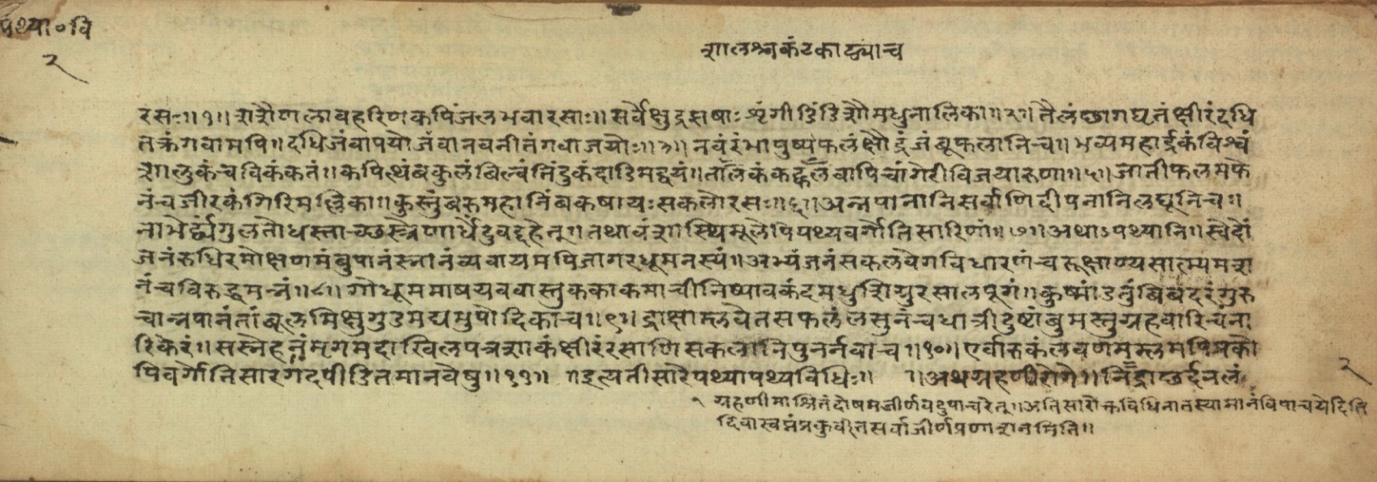 पथ्या०वि
२
शालश्चकंटकाढ्याच
रसः॥१॥शशैणलावहरिणकपिंजलभवारसाः॥सर्वेक्षुद्रझषाःशृंगीडिंडिशोमधुनालिका॥२॥तैलंछागघृतंक्षीरंदधि
तक्रंगवामपि॥दधिजंवापयोजंवानवनीतंगवाजयोः॥३॥नवंरंभापुष्पफलंक्षौद्रंजंबूफलानिच॥भव्यमहार्द्रकंविश्वं
शालुकंचविकंकतं॥कपित्थंबकुलंबिल्वंतिंदुकंदाडिमद्वयं॥तालकंकट्फलंवापिचांगेरीविजयारुणा॥५॥जातीफलमफे
नंचजीरकंगिरिमल्लिका॥कुस्तुंबरुमहानिंबकषायःसकलोरसः॥६॥अन्नपानानिसर्वाणिदीपनानिलघूनिच॥
नाभेर्द्व्यंगुलतोधस्ताच्छस्त्रेणार्धेंदुवद्दहेत्॥तथावंशास्थिमूलेपिपथ्यवर्गोतिसारिणां॥७॥अथाऽपथ्यानि॥स्वेदों
जनंरुधिरमोक्षणमंबुपानंस्नानंव्यवायमपिजागरधूमनस्यं॥अभ्यंजनंसकलवेगविधारणंचरूक्षाण्यसात्म्यमश
नंचविरुद्धमन्नं॥८॥गोधूममाषयववास्तुककाकमाचीनिष्पावकंदमधुशिग्रुरसालपूगं॥कुष्मांडतुंबिबदरंगुरु
चान्नपानंतांबूलमिक्षुगुडमद्यमुपोदिकांच॥९॥द्राक्षाम्लवेतसफलंलसुनंचधात्रीदुष्टांबुमस्तुगृहवारिचना
रिकेरं॥सस्नेहनंमृगमदाखिलपत्रशाकंक्षीरंरसाणिसकलानिपुनर्नवाच॥१०॥एर्वारुकंलवणमम्लमपिप्रको
पिवर्गोतिसारगदपीडितमानवेषु॥११॥ ॥इत्यतीसारेपथ्यापथ्यविधिः॥ ॥अथग्रहणीरोगे॥निद्राछर्दनलं
२
१ ग्रहणीमाश्रितंदोषमजीर्णवदुपाचरेत्॥अतिसारोक्तविधिनातस्यामानंविपाचयेदिति
दिवास्वप्नंप्रकुर्वीतसर्वाजीर्णप्रणाशनमिति॥